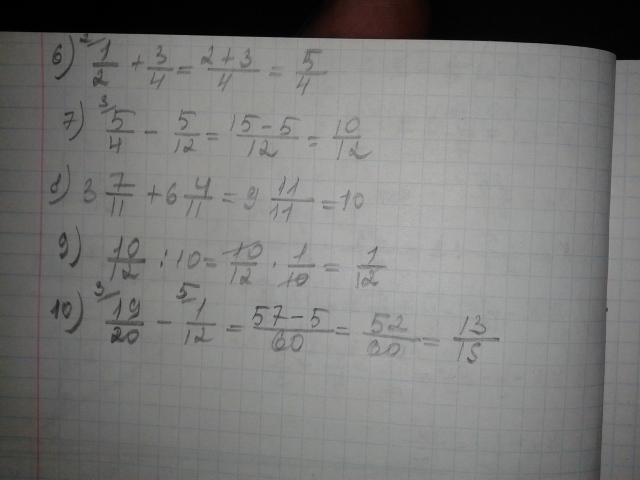 6) ²/1/2 + 3/4 = 2+3/4 = 5/4
7) ³/5/4 - 5/12 = 15-5/12 = 10/12
8) 3 7/11 + 6 4/11 = 9 11/11 = 10
9) 10/12 : 10 = 10/12 · 1/10 = 1/12
10) ³/19/20 - ⁵/1/12 = 57-5/60 = 52/60 = 13/15